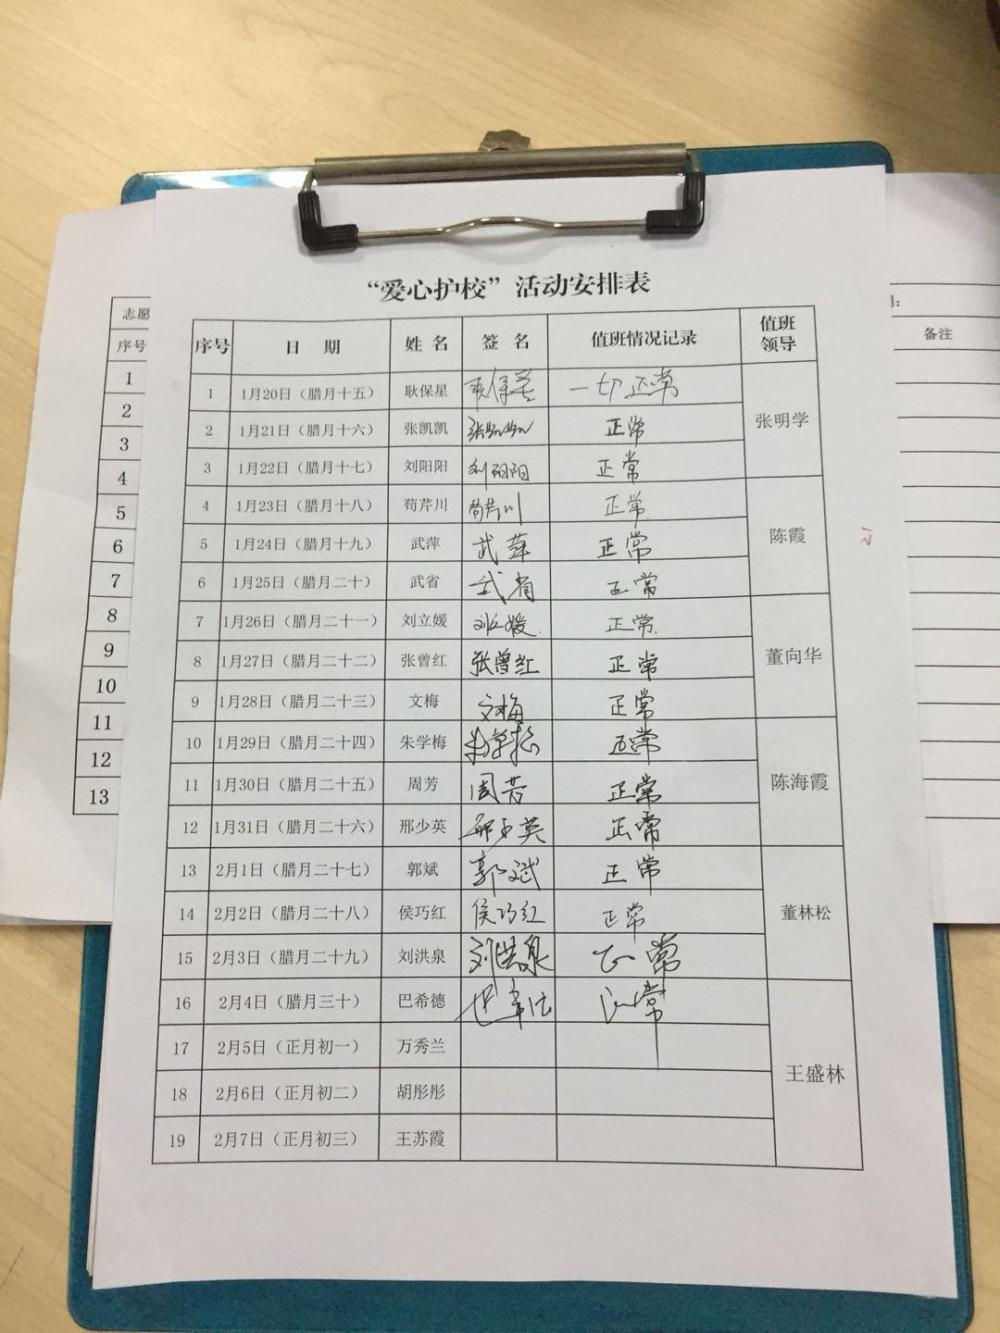 “爱心护校”活动安排表
序号 日 期 姓 名 签 名 值班情况记录 值班领导
1 1月20日（腊月十五） 耿保星 耿保星 一切正常 张明学
2 1月21日（腊月十六） 张凯凯 张凯凯 正常
3 1月22日（腊月十七） 刘阳阳 刘阳阳 正常
4 1月23日（腊月十八） 荀芹川 荀芹川 正常 陈霞
5 1月24日（腊月十九） 武萍 武萍 正常
6 1月25日（腊月二十） 武省 武省 正常
7 1月26日（腊月二十一） 刘立媛 刘立媛 正常 董向华
8 1月27日（腊月二十二） 张曾红 张曾红 正常
9 1月28日（腊月二十三） 文梅 文梅 正常
10 1月29日（腊月二十四） 朱学梅 朱学梅 正常 陈海霞
11 1月30日（腊月二十五） 周芳 周芳 正常
12 1月31日（腊月二十六） 邢少英 邢少英 正常
13 2月1日（腊月二十七） 郭斌 郭斌 正常 董林松
14 2月2日（腊月二十八） 侯巧红 侯巧红 正常
15 2月3日（腊月二十九） 刘洪泉 刘洪泉 正常
16 2月4日（腊月三十） 巴希德 正常 王盛林
17 2月5日（正月初一） 万秀兰
18 2月6日（正月初二） 胡彤彤
19 2月7日（正月初三） 王苏霞
志愿
序号
备注
1
2
3
4
5
6
7
8
9
10
11
12
13